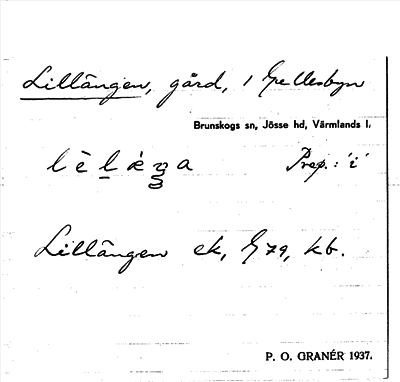 Lillängen, gård, i Gellesbyn
Brunskogs sn, Jösse hd, Värmlands l.
Prep.: 'i'
Lillängen ek, G79, kb.
P. O. GRANÉR 1937.